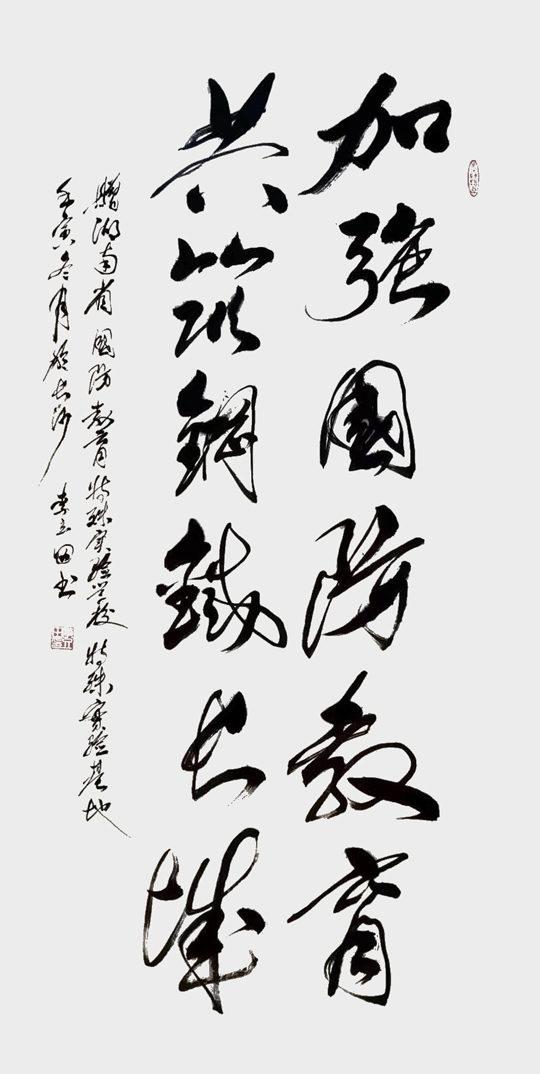 加強國防教育
共筑鋼鐵长城
赠湖南省国防教育特殊实验学校特殊实验基地
壬寅冬月於长沙 李立田书